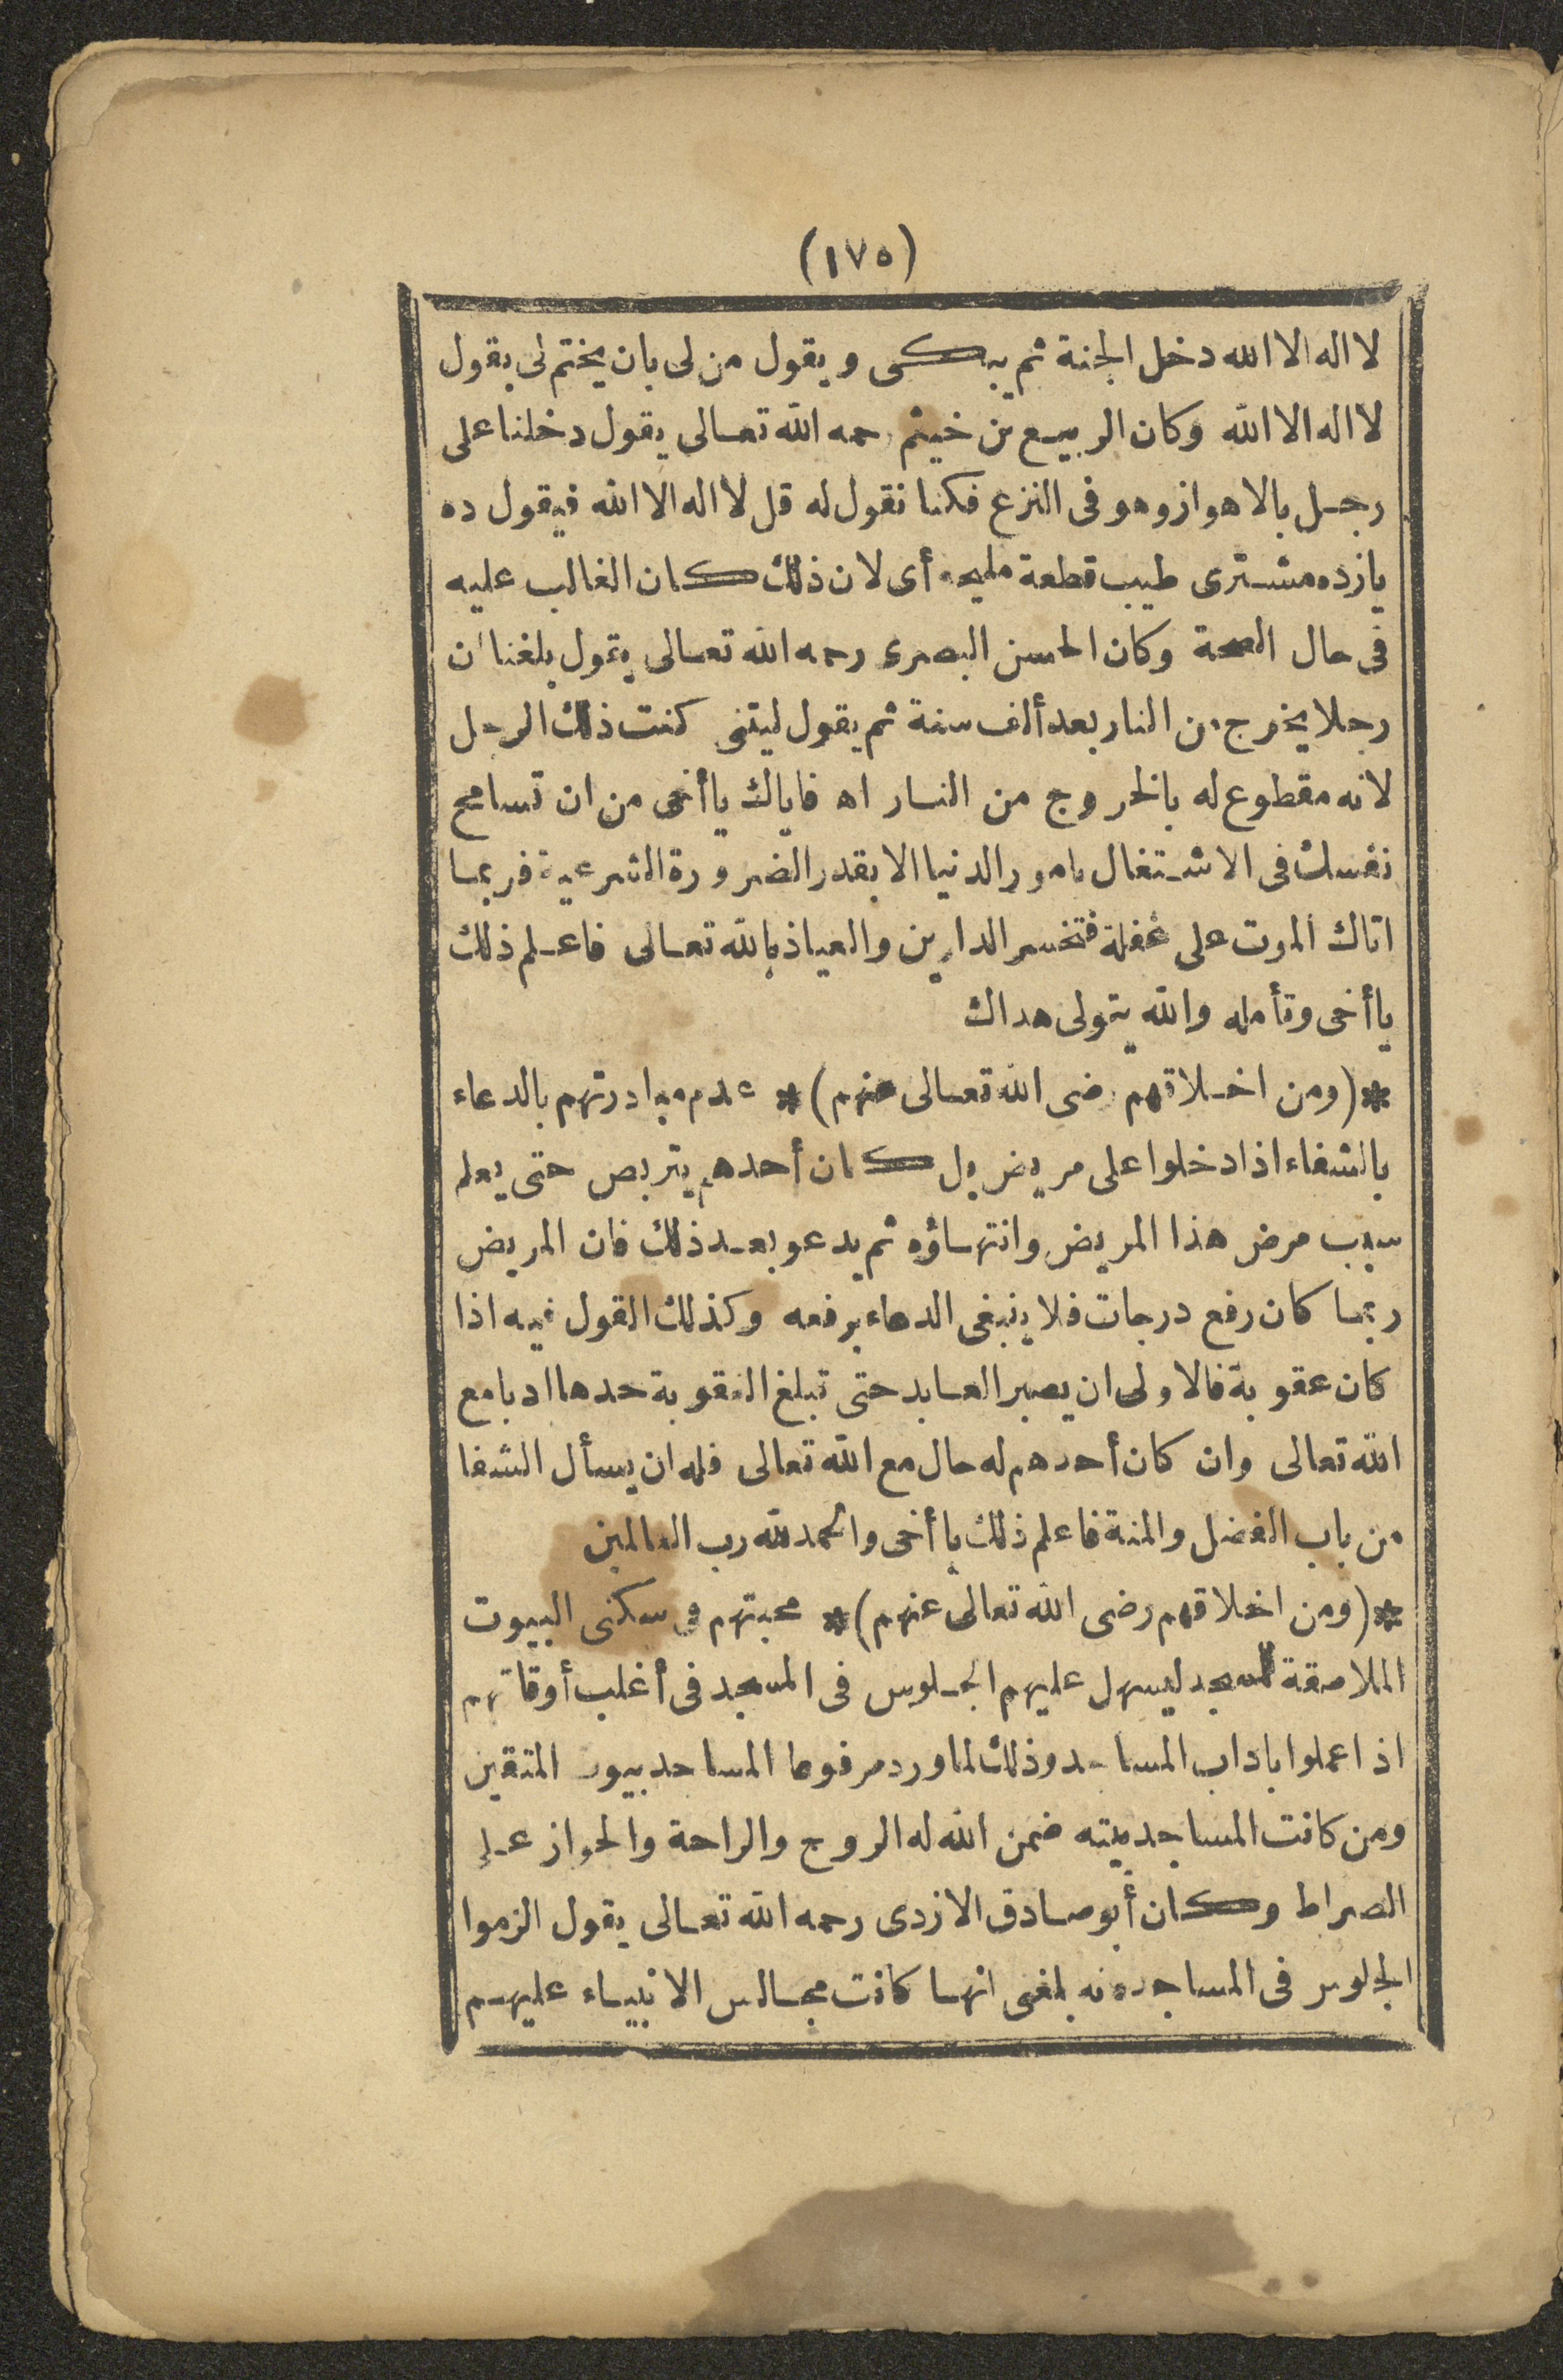 (١٧٥)
لا اله الا الله دخل الجنة ثم يبكى ويقول من لى بان يختم لى بقول
لا اله الا الله وكان الربيع بن خيثم رحمه الله تعالى يقول دخلنا على
رجل بالاهواز وهو فى النزع فكنا نقول له قل لا اله الا الله فيقول ده
يازده مشترى طيب قطعة مليحه أى لان ذلك كان الغالب عليه
فى حال الصحة وكان الحسن البصرى رحمه الله تعالى يقول بلغنا أن
رجلا يخرج من النار بعد ألف سنة ثم يقول ليتنى كنت ذلك الرجل
لانه مقطوع له بالخروج من النار اه فاياك ياأخى من ان تسامح
نفسك فى الاشتغال بامور الدنيا الا بقدر الضرورة الشرعية فربما
اتاك الموت على غفلة فتخسر الدارين والعياذ بالله تعالى فاعلم ذلك
ياأخى وتأمله والله يتولى هداك
* (ومن اخلاقهم رضى الله تعالى عنهم) * عدم مبادرتهم بالدعاء
بالشفاء اذا دخلوا على مريض بل كان أحدهم يتربص حتى يعلم
سبب مرض هذا المريض وانتهاؤه ثم يدعو بعد ذلك فان المريض
ربما كان رفع درجات فلا ينبغى الدعاء برفعه وكذلك القول فيه اذا
كان عقوبة فالاولى ان يصبر العابد حتى تبلغ العقوبة حدها ادبا مع
الله تعالى وان كان أحدهم له حال مع الله تعالى فله ان يسأل الشفا
من باب الفضل والمنة فاعلم ذلك ياأخى والحمد لله رب العالمين
* (ومن اخلاقهم رضى الله تعالى عنهم) * محبتهم فى سكنى البيوت
الملاصقة للمسجد ليسهل عليهم الجلوس فى المسجد فى أغلب أوقاتهم
اذا عملوا باداب المساجد وذلك لما ورد مرفوعا المساجد بيوت المتقين
ومن كانت المساجد بيته ضمن الله له الروح والراحة والجواز على
الصراط وكان أبو صادق الازدى رحمه الله تعالى يقول الزموا
الجلوس فى المساجد فانه بلغنى انها كانت مجالس الانبياء عليهم